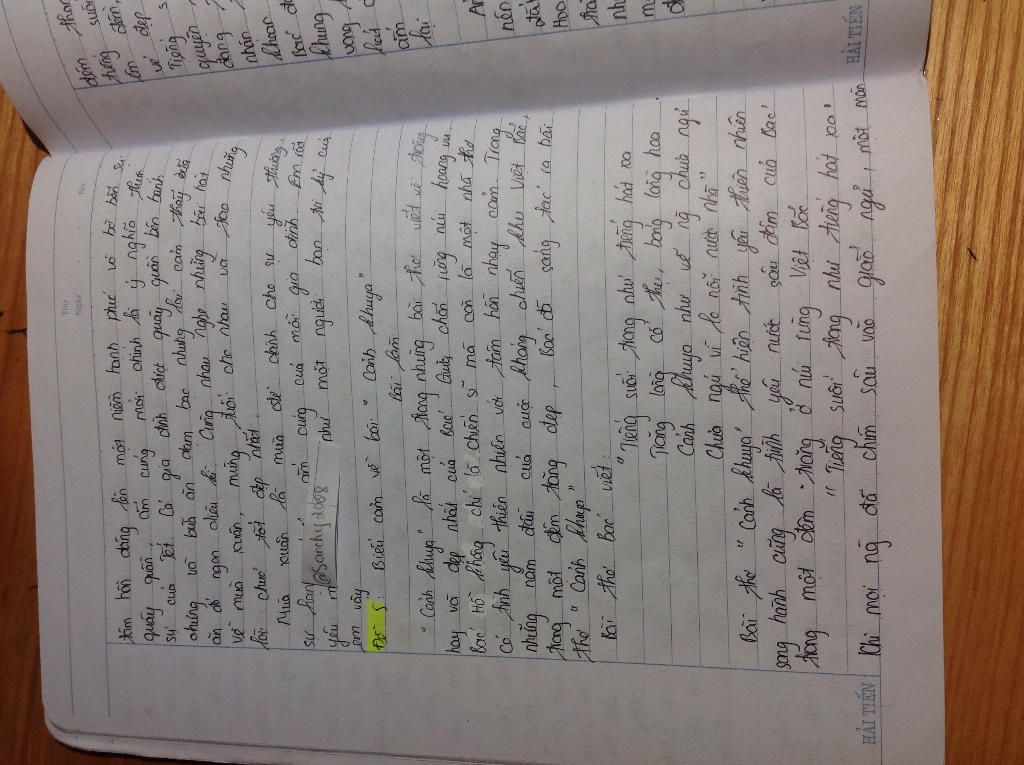 Thứ
Ngày
No.
tâm hồn dâng lên một niềm hạnh phúc vô bờ bến. Sự
quây quần ấm cúng mới chính là ý nghĩa thực
sự của Tết. Cả gia đình được quây quần bên bánh
chưng và bữa ăn đạm bạc nhưng lại cảm thấy bữa
ăn đó ngon diệu kì. Cùng nhau nghe những bài hát
về mùa xuân, mừng tuổi cho nhau và trao những
lời chúc tốt đẹp nhất.
Mùa xuân là mùa để dành cho sự yêu thương,
sự ấm cúng của mỗi gia đình. Em rất
yêu như một người bạn tri kỷ của
em vậy
@Sanchy2008
Đề 5: Biểu cảm về bài "Cảnh khuya"
Bài làm
"Cảnh khuya" là một trong những bài thơ viết về trăng
hay và đẹp nhất của Bác. Giữa chốn rừng núi hoang vu
Bác Hồ không chỉ là chiến sĩ mà còn là một nhà thơ
có tình yêu thiên nhiên với tâm hồn nhạy cảm. Trong
những năm đầu của cuộc kháng chiến khu Việt Bắc,
trong một đêm trăng đẹp, Bác đã sáng tác ra bài
thơ "Cảnh khuya"
Bài thơ Bác viết:
"Tiếng suối trong như tiếng hát xa
Trăng lồng cổ thụ, bóng lồng hoa
Cảnh khuya như vẽ người chưa ngủ
Chưa ngủ vì lo nỗi nước nhà"
Bài thơ "Cảnh khuya" thể hiện tình yêu thiên nhiên
song hành cùng là tình yêu nước sâu đậm của Bác
trong một đêm trăng ở núi rừng Việt Bắc
"Tiếng suối trong như tiếng hát xa"
Khi mọi ng đã chìm sâu vào giấc ngủ, một mình
HẢI TIẾN
HẢI TIẾN